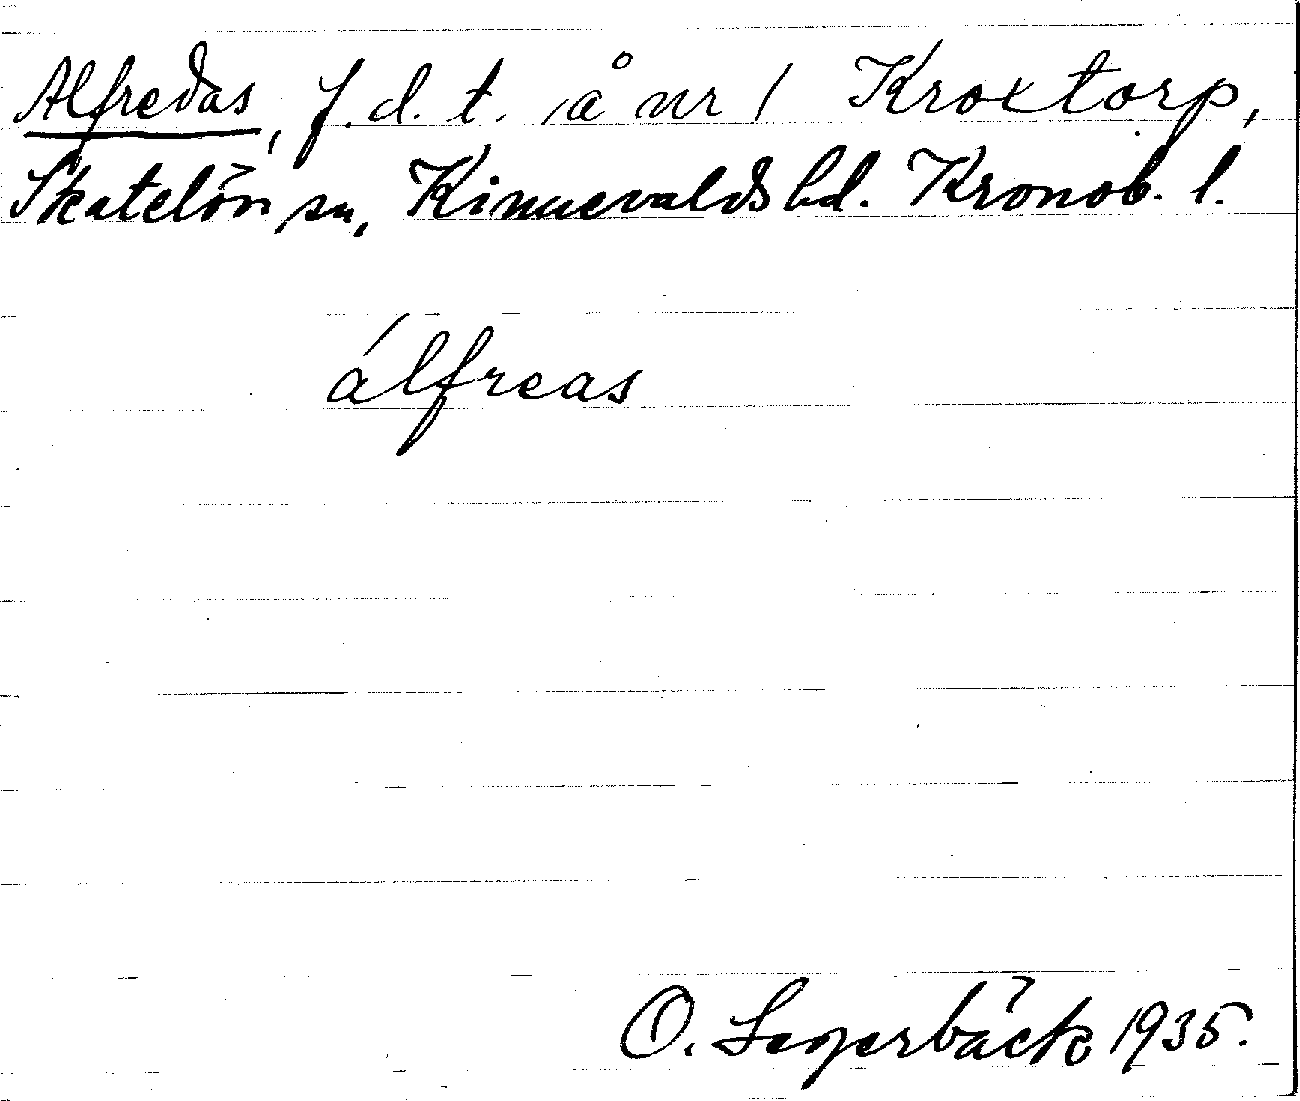 Alfredas, f.d.t. å nr 1 Kroxtorp,
Skatelöv sn, Kinnevalds hd. Kronob. l.
álfreas
O. Segerbäck 1935.